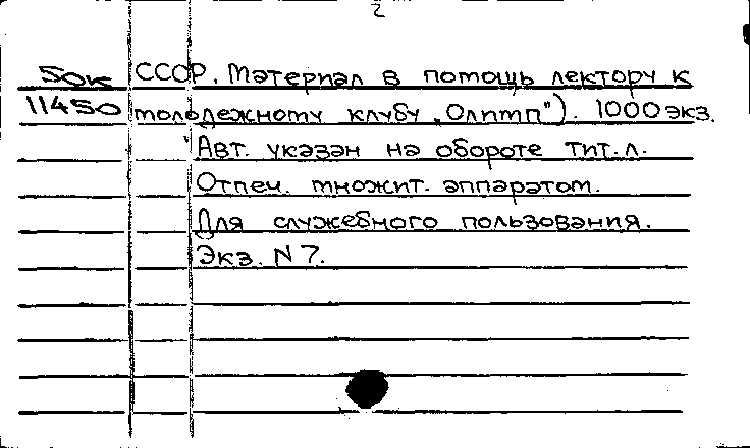 2
50к СССР. Материал в помощь лектору к
11450 молодежному клубу „Олимп"). 1000 экз.
Авт. указан на обороте тит. л.
Отпеч. множит. аппаратом.
Для служебного пользования.
Экз. N 7.